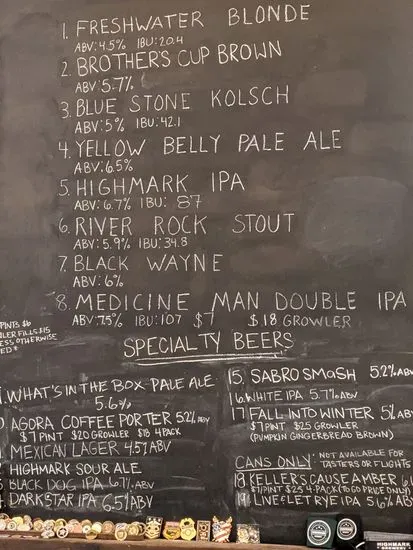 1. FRESHWATER BLONDE
ABV: 4.5% IBU: 20.4
2. BROTHERS CUP BROWN
ABV: 5.7%
3. BLUE STONE KOLSCH
ABV: 5% IBU: 42.1
4. YELLOW BELLY PALE ALE
ABV: 6.5%
5. HIGHMARK IPA
ABV: 6.7% IBU: 87
6. RIVER ROCK STOUT
ABV: 5.9% IBU: 34.8
7. BLACK WAYNE
ABV: 6%
8. MEDICINE MAN DOUBLE IPA
ABV: 7.5% IBU: 107 $7 $18 GROWLER
PINTS $6
LER FILLS $15
ESS OTHERWISE
ED*
SPECIALTY BEERS
WHAT'S IN THE BOX PALE ALE
5.6%
AGORA COFFEE PORTER 5.2% ABV
$7 PINT $20 GROWLER $18 4 PACK
MEXICAN LAGER 4.5% ABV
HIGHMARK SOUR ALE
BLACK DOG IPA 6.7% ABV
DARKSTAR IPA 6.5% ABV
15. SABRO SMaSH 5.2% ABV
16. WHITE IPA 5.7% ABV
17 FALL INTO WINTER 5% ABV
$7 PINT $25 GROWLER
(PUMPKIN GINGERBREAD BROWN)
CANS ONLY: NOT AVAILABLE FOR
TASTERS OR FLIGHTS
18 KELLERS CAUSE AMBER 6
$7/PINT $25 4-PACK (TO GO PRICE ONLY)
19 LIVE & LET RYE IPA 5.6% ABV
HIGHMARK